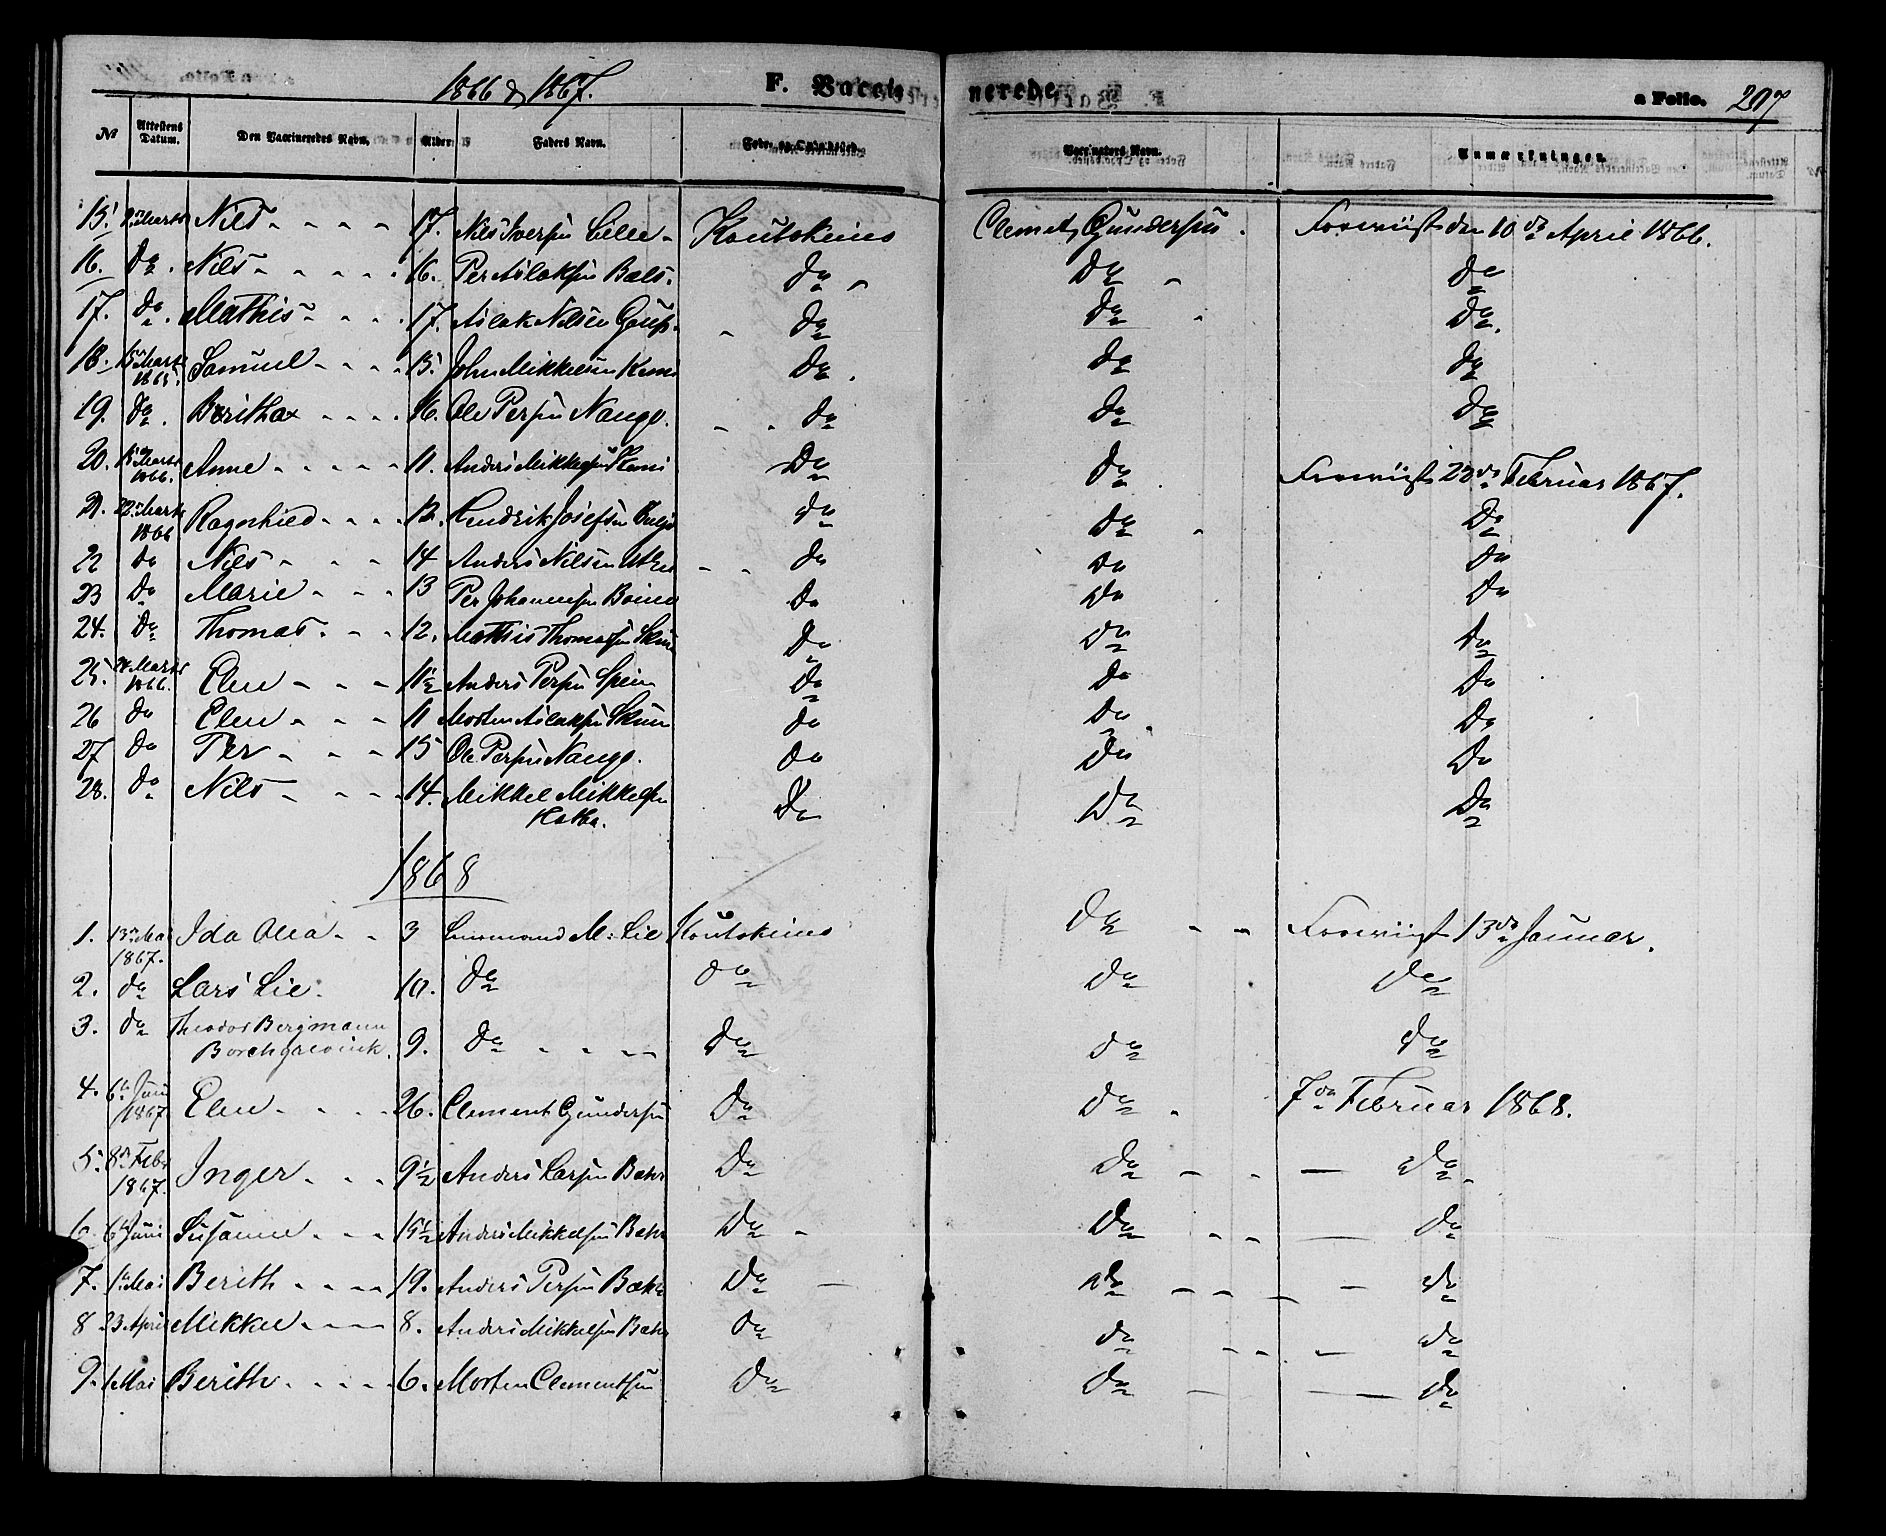 1866 & 1867. F. Vaccinerede a Folio. 297
No Attestens Datum. Den Vaccineredes Navn. Alder. Faders Navn. Føde- og Opholdsted. Vaccinators Navn. Anmærkninger.
15. Marts Nils 17. Nils Iversen Koutokeino Clemet Gundersen. Foreviist den 10de April 1866.
16. Do. Nils 16. Per Aslaksen Bals. Do Do Do
17. Do. Mathis 17. Aslak Nilsen Gaup. Do Do Do.
18. 15 Marts 1865. Samuel 15. John Mikkelsen Kemi Do. Do Do
19. Do. Beritha 16. Ole Persen Nango. Do Do Do
20. 15 Marts 1866. Anne 11. Anders Mikkelsen Kemi Do Do Foreviist 23de Februar 1867.
21. 22 Marts 1866 Ragnhild 12. Hendrik Josefsen Do Do Do
22 Do Nils 14 Anders Nilsen Utsi Do Do Do
23 Do Marie 13 Per Johannesen Boino Do Do Do
24. Do Thomas 12. Mathis Thomasen Skum Do Do Do
25. Marts 1866. Elen 11½ Anders Persen Spein Do Do Do
26 Do Elen 11 Morten Aslaksen Skum Do Do. Do
27 Do Per 15 Ole Persen Nango. Do Do Do
28. Do Nils 14. Mikkel Mikkelsen Do Do Do
Hætta.
1868
1. 13 Mai 1867. Ida Olea 3 Lensmand M. Lie Koutokeino Do Foreviist 13de Januar.
2. Do Lars Lie. 10. Do Do Do Do
3. Do Theodor Bergmann Borchgrevink. 9. Do Do Do Do
4. 6te Juni 1867 Elen 26. Clement Gundersen Do Do. 7de Februar 1868.
5. 8de Febr 1867. Inger 9½ Anders Larsen Bæhr Do Do Do.
6. 6te Juni Susanne 15½ Anders Mikkelsen Bæhr Do Do Do
7. 1 Mai Berith 19. Anders Persen Bæhr Do Do Do
8 23 April Mikkel 8. Anders Mikkelsen Bæhr Do Do Do
9. 1 Mai Berith 6. Morten Clementsen Do Do Do